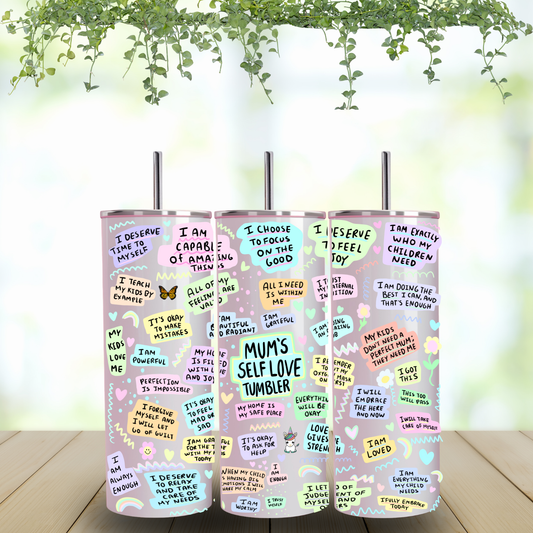 I DESERVE
TIME TO
MYSELF
I AM
CAPABLE
OF AMAZING
THINGS
I TEACH
MY KIDS BY
EXAMPLE
ALL OF MY
FEELINGS ARE
VALID
IT'S OKAY
TO MAKE
MISTAKES
MY
KIDS
LOVE
ME
I AM
POWERFUL
MY HOME
IS FILLED
WITH LOVE
AND JOY
PERFECTION
IS IMPOSSIBLE
I FORGIVE
MYSELF AND
I WILL LET
GO OF GUILT
IT'S OKAY
TO FEEL
MAD OR
SAD
I AM GRATEFUL
FOR THE TIME
WITH MY KIDS
TODAY
I
AM
ALWAYS
ENOUGH
I DESERVE
TO RELAX
AND TAKE
CARE OF
MY NEEDS
I CHOOSE
TO FOCUS
ON THE
GOOD
ALL I NEED
IS WITHIN
ME
I AM
GRATEFUL
MUM'S
SELF LOVE
TUMBLER
MY HOME IS
MY SAFE PLACE
EVERYTHING
WILL BE
OKAY
IT'S OKAY
TO ASK FOR
HELP
LOVE
GIVES
STRENGTH
WHEN MY CHILD
IS HAVING BIG
EMOTIONS I WILL
I
AM
ENOUGH
I AM
WORTHY
I TRUST
MYSELF
I DESERVE
TO FEEL
JOY
I AM EXACTLY
WHO MY
CHILDREN
NEED
I AM DOING THE
BEST I CAN, AND
THAT'S ENOUGH
MY KIDS
DON'T NEED A
PERFECT MUM;
THEY NEED ME
I GOT
THIS
I WILL
EMBRACE
THE HERE
AND NOW
THIS TOO
WILL PASS
I WILL TAKE
CARE OF MYSELF
I AM
LOVED
I AM
EVERYTHING
MY CHILD
NEEDS
I FULLY EMBRACE
TODAY